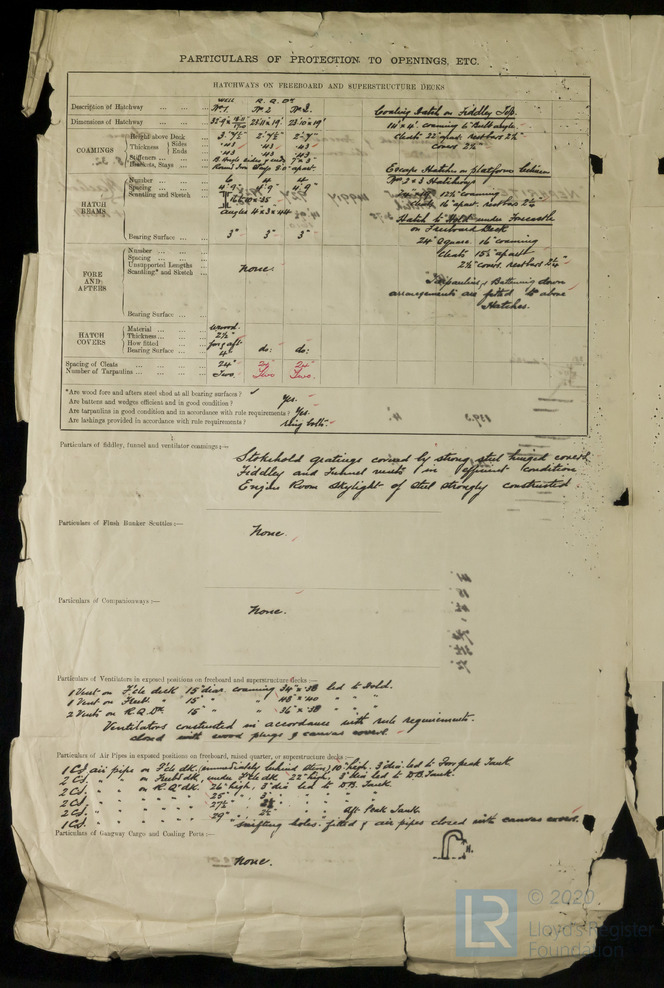 PARTICULARS OF PROTECTION TO OPENINGS, ETC.
HATCHWAYS ON FREEBOARD AND SUPERSTRUCTURE DECKS
WELL R. Q. Dk
Description of Hatchway No 1 No 2 No 3.
Dimensions of Hatchway 23'11" x 19' 23'10" x 19'
COAMINGS
Height above Deck 3'.7½" 2'.7½" 2'.7"
Thickness Sides .43 .43 .43
Ends .43 .43 .43
Stiffeners
Brackets, Stays
HATCH BEAMS
Number 4 4
Spacing 4'.9" 4'.9" 4'.9"
Scantling and Sketch
Angles 4 x 3 x .44
Bearing Surface 3" 3" 3"
FORE AND AFTERS
Number
Spacing
Unsupported Lengths
Scantling* and Sketch None.
Bearing Surface
HATCH COVERS
Material wood.
Thickness 2½"
How fitted for & aft do: do:
Bearing Surface 4"
Spacing of Cleats 24" 24" 24"
Number of Tarpaulins Two Two Two.
Coaling Hatch on Fiddley Top.
14' x 4' coaming to Bulb angle
Cleats 22" apart. rest bars 2½"
Covers 2½"
Escape Hatches on platform between
No 2 & 3 Hatchways
12½" coaming
Cleats 16" apart. rest bars 2½"
Hatch to Hold under Forecastle
on Freeboard Deck
24" square. 16" coaming
Cleats 15½" apart
2½" covers. rest bars 2¼"
Tarpaulins & Battening down
arrangements are fitted to above
Hatches.
*Are wood fore and afters steel shod at all bearing surfaces?
Are battens and wedges efficient and in good condition? Yes.
Are tarpaulins in good condition and in accordance with rule requirements? Yes.
Are lashings provided in accordance with rule requirements? ring bolts.
Particulars of fiddley, funnel and ventilator coamings:—
Stokehold gratings covered by strong steel hinged covers.
Fiddley and Funnel in efficient condition
Engine Room Skylight of Steel strongly constructed.
Particulars of Flush Bunker Scuttles:—
None.
Particulars of Companionways:—
None.
Particulars of Ventilators in exposed positions on freeboard and superstructure decks:—
1 Vent on F'cle deck 15" diar. coaming 34" x .38 led to Hold.
1 Vent on Freebd. " 15" " " 48" x .40 " " "
2 Vents on R.Q.Dk. 15" " " 36" x .38 " " "
Ventilators constructed in accordance with rule requirements.
closed with wood plugs & canvas covers.
Particulars of Air Pipes in exposed positions on freeboard, raised quarter, or superstructure decks:—
1 C.I. air pipe on F'cle dk (immediately behind stem) high. 3" dia. led to Fore peak Tank
2 C.I. " " on Freebd dk. under F'cle dk 22" high. 3" dia led to D.B. Tank.
2 C.I. " " on R.Q. dk 26" high. 3" dia led to D.B. Tank
2 C.I. " " " 25" 3" " " "
2 C.I. " " " 27½"
2 C.I. " " " 29" 2½" " " Aft Peak Tank.
1 C.I. " snifting holes fitted & air pipes closed with canvas covers.
Particulars of Gangway Cargo and Coaling Ports:—
None.
H.
LR
© 2020
Lloyd's Register
Foundation